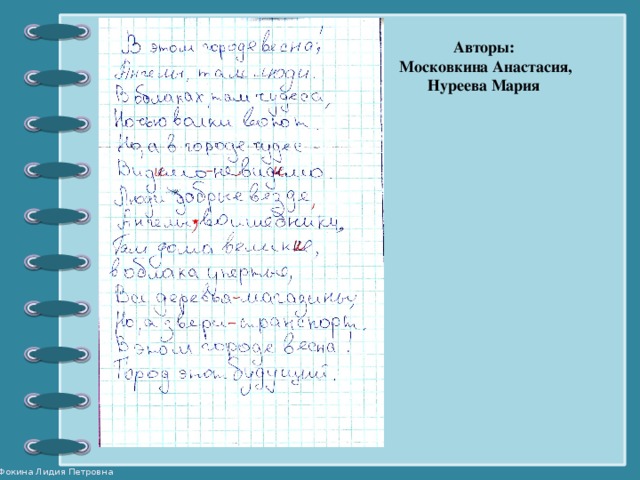 В этом городе весна!
Ангелы, там люди.
В облаках, там чудеса,
Ночью волки воют.
Но, а в городе чудес –
Видимо-невидимо.
Люди добрые везде,
Ангелы, волшебники,
Там дома великие,
в облака упертые,
Все деревья-магазины,
Но, а звери-транспорт.
В этом городе весна!
Город этот будущий.
Авторы:
Московкина Анастасия,
Нуреева Мария
Фокина Лидия Петровна